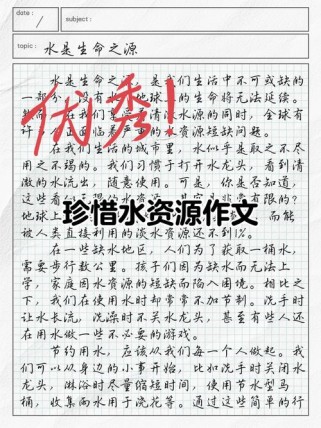 date:
subject:
topic:
水是生命之源
优秀!
水是生命之源,是我们生活中不可或缺的
一部分。没有水,地球上的生命将无法延续。
在我们享受清洁水源的同时,全球有
正面临着严重的水资源短缺问题。
在我们生活的城市里,水似乎是取之不尽
用之不竭的。我们习惯于打开水龙头,看到清
澈的水流出,随意使用。可是,你是否知道,
有限的?
珍惜水资源作文
地球上
而能
被人类直接利用的淡水资源还不到1%。
在一些缺水地区,人们为了获取一桶水,
需要步行数公里。孩子们因为缺水而无法上
学,家庭因水资源的短缺而陷入困境。相比之
下,我们在使用水时却常常不加节制。洗手时
让水长流,洗澡时不关水龙头,甚至有些人还
在用水做一些不必要的游戏。
节约用水,应该从我们每一个人做起。我
们可以从身边的小事开始,比如洗手时关闭水
龙头,淋浴时尽量缩短时间,使用节水型马
桶,收集雨水用于浇花等。通过这些简单的行